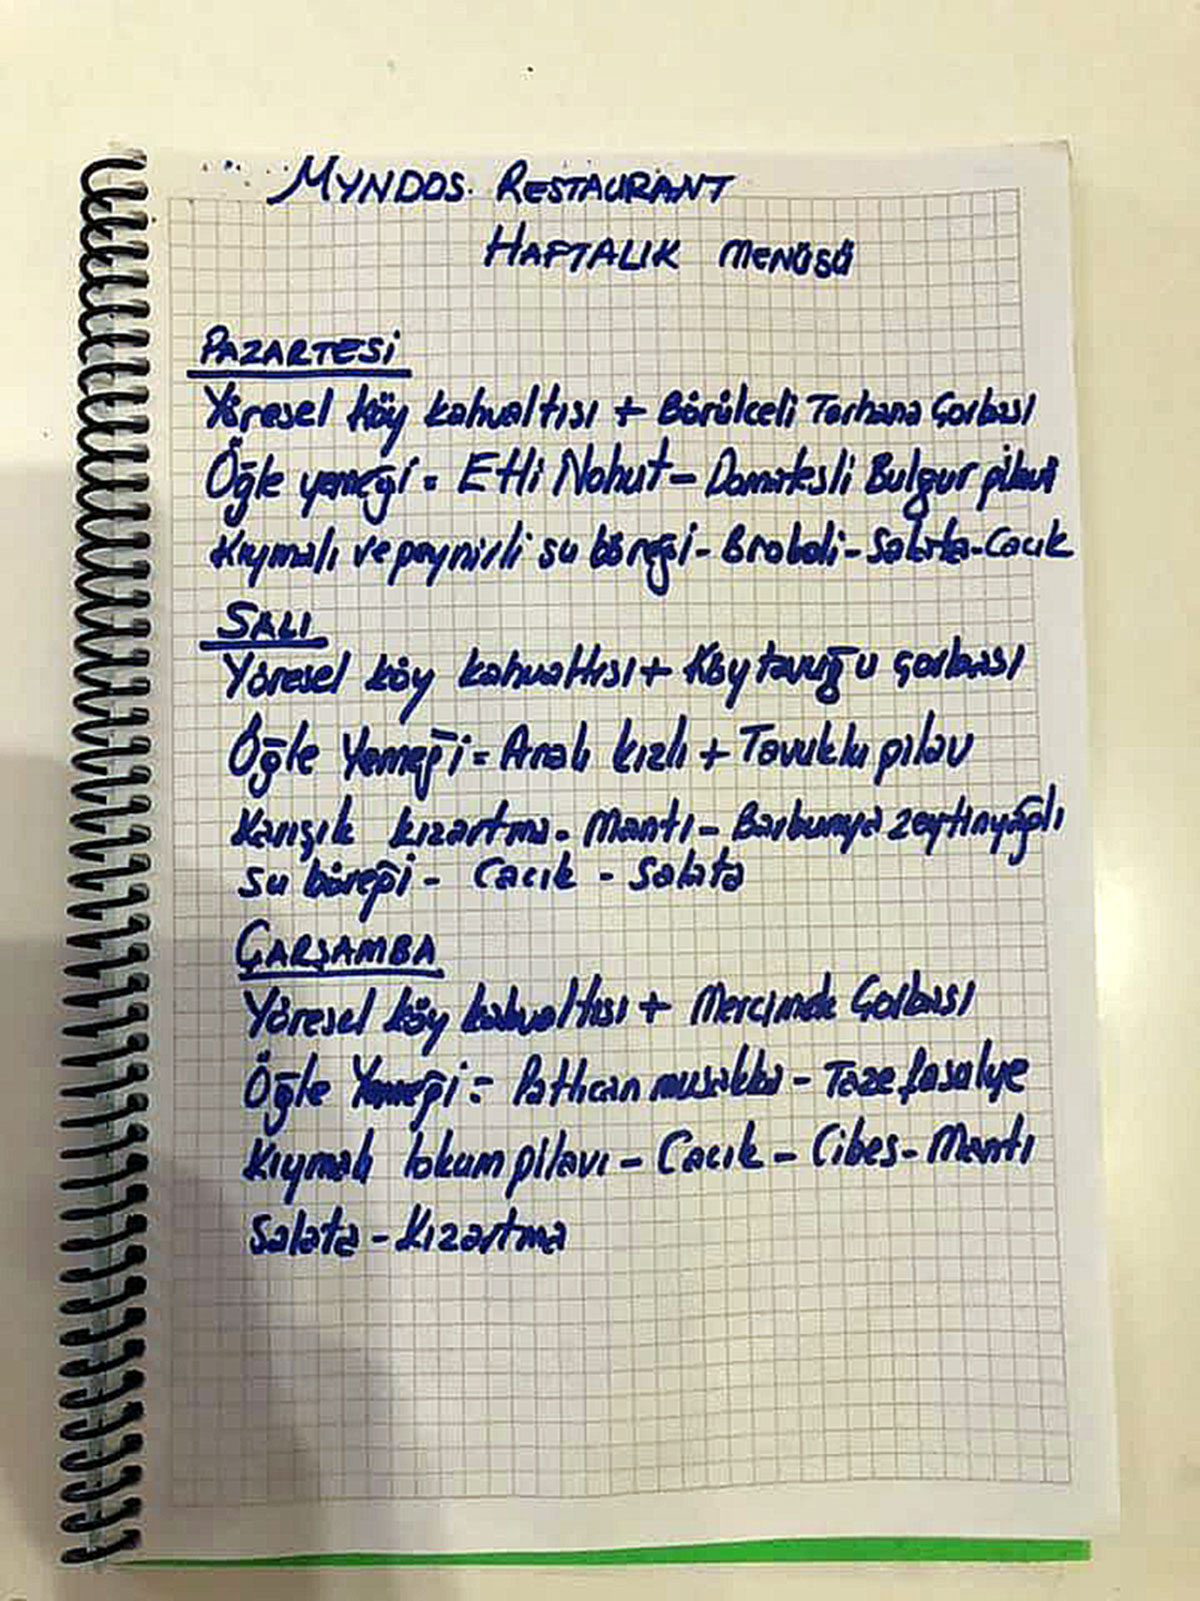 MYNDOS RESTAURANT
HAFTALIK MENÜSÜ
PAZARTESİ
Yöresel köy kahvaltısı + Börülceli Tarhana Çorbası
Öğle yemeği = Etli Nohut - Domatesli Bulgur pilavı
Kıymalı ve peynirli su böreği - Brokoli - Salata - Cacık
SALI
Yöresel köy kahvaltısı + Köy tavuğu çorbası
Öğle Yemeği = Analı kızlı + Tavuklu pilav
Karışık kızartma - Mantı - Barbunya zeytinyağlı
su böreği - Cacık - Salata
ÇARŞAMBA
Yöresel köy kahvaltısı + Mercimek Çorbası
Öğle Yemeği = Patlıcan musakka - Taze fasulye
Kıymalı lokum pilavı - Cacık - Cibes - Mantı
Salata - Kızartma